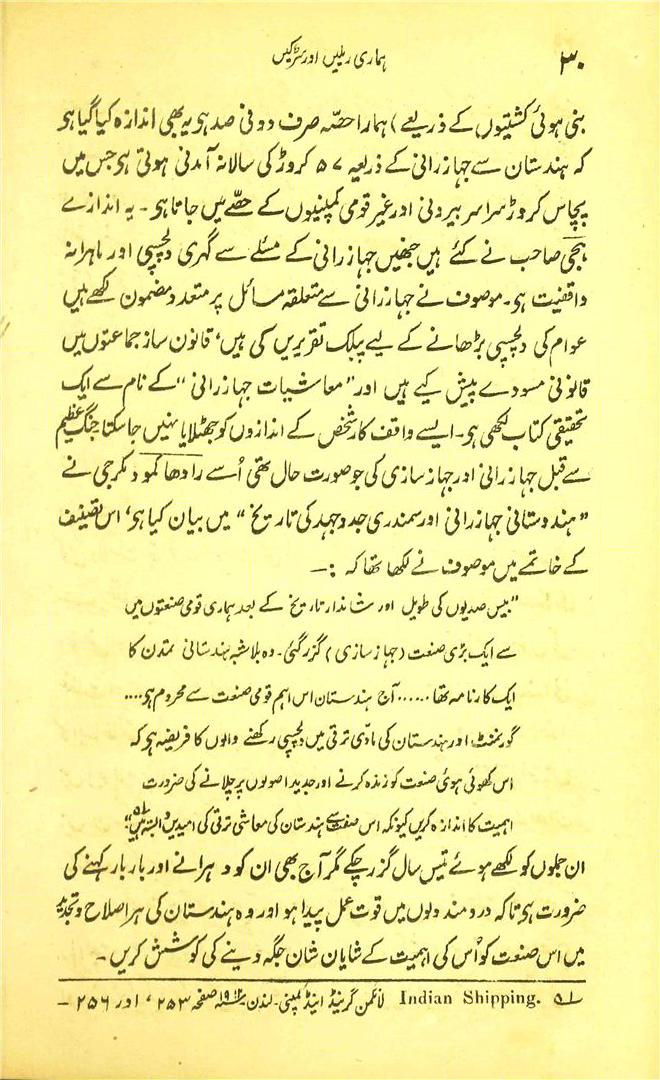 ۳۰
ہماری ریلیں اور سڑکیں
بنی ہوئی کشتیوں کے ذریعے) ہمارا حصّہ صرف دو نی صد ہو یہ بھی اندازہ کیا گیا ہو
کہ ہندستان سے جہازرانی کے ذریعہ ۵۷ کروڑ کی سالانہ آمدنی ہوتی ہو جس میں
پچاس کروڑ سراسر بیرونی اور غیر قومی کمپنیوں کے حصّے میں جاتا ہو۔ یہ اندازے
ہجی صاحب نے کئے ہیں جنھیں جہازرانی کے مسئلے سے گہری دلچسپی اور ماہرانہ
واقفیت ہو۔ موصوف نے جہازرانی سے متعلقہ مسائل پر متعدد مضمون لکھے ہیں
عوام کی دلچسپی بڑھانے کے لیے پبلک تقریریں کی ہیں، قانون ساز جماعتوں میں
قانونی مسودے پیش کیے ہیں اور ”معاشیات جہازرانی“ کے نام سے ایک
تحقیقی کتاب لکھی ہو۔ ایسے واقف کار شخص کے اندازوں کو جھٹلایا نہیں جا سکتا جنگ عظیم
سے قبل جہازرانی اور جہاز سازی کی جو صورت حال تھی اُسے رادھا کمود مکرجی نے
”ہندوستانی جہازرانی اور سمندری جد وجہد کی تاریخ“ میں بیان کیا ہو، اس تصنیف
کے خاتمے میں موصوف نے لکھا تھا کہ :—
”بیس صدیوں کی طویل اور شاندار تاریخ کے بعد ہماری قومی صنعتوں میں
سے ایک بڑی صنعت (جہاز سازی) گزر گئی۔ وہ بلاشبہ ہندستانی تمدن کا
ایک کارنامہ تھا ...... آج ہندستان اس اہم قومی صنعت سے محروم ہو....
گورنمنٹ اور ہندستان کی مادّی ترقی میں دلچسپی رکھنے والوں کا فریضہ ہو کہ
اس کھوئی ہوئی صنعت کو زندہ کرنے اور جدید اصولوں پر چلانے کی ضرورت
اہمیت کا اندازہ کریں کیونکہ اس صنعت سے ہندستان کی معاشی ترقی کی امیدیں وابستہ ہیں۔“ ۵۱
ان جملوں کو لکھے ہوئے تیس سال گزر چکے مگر آج بھی ان کو دہرانے اور بار بار کہنے کی
ضرورت ہو تاکہ درد مند دلوں میں قوت عمل پیدا ہو اور وہ ہندستان کی ہر اصلاح و تجدید
میں اس صنعت کو اُس کی اہمیت کے شایان شان جگہ دینے کی کوشش کریں۔
۵۱ Indian Shipping. لانگمن گرینڈ اینڈ کمپنی۔ لندن۔ ۱۹۱۲ء صفحہ ۲۵۳، اور ۲۵۶ —